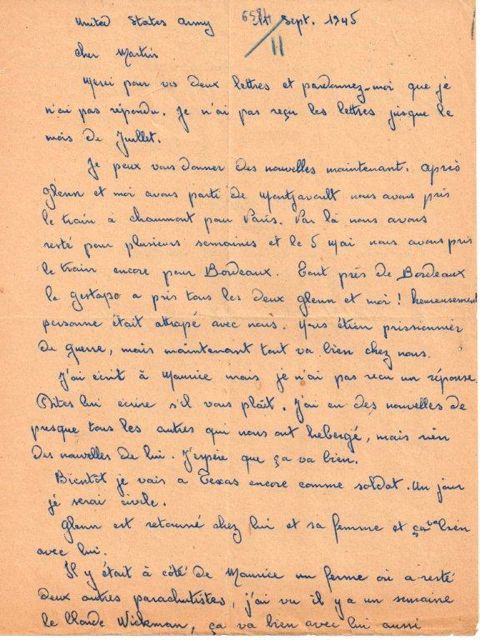 United States Army Sept. 1945
11
Cher Martin
Merci pour vos deux lettres et pardonnez-moi que je
n'ai pas répondu. Je n'ai pas reçu les lettres jusque le
mois de Juillet.
Je peux vous donner des nouvelles maintenant. Après
Glenn et moi avons parté de Montjavoult nous avons pris
le train à chaumont pour Paris. Par là nous avons
resté pour plusieurs semaines et le 5 Mai nous avons pris
le train encore pour Bordeaux. Tout près de Bordeaux
le gestapo a pris tous les deux Glenn et moi ! heureusement
personne était attrapé avec nous. prissionnier
de guerre, mais maintenant tout va bien chez nous.
J'ai écrit à Maurice mais je n'ai pas recu un réponse.
Dites lui écrire s'il vous plaît. J'ai eu des nouvelles de
presque tous les autres qui nous ont hebergé, mais rien
des nouvelles de lui. J'espère que ça va bien.
Bientôt je vais a Texas encore comme soldat. Un jour
je serai civile.
Glenn est retourné chez lui et sa femme et ça va bien
avec lui.
Il y était à côté de Maurice un ferme où a resté
deux autres parachutistes, j'ai vu il y a un semaine
le Wickman, ça va bien avec lui aussi